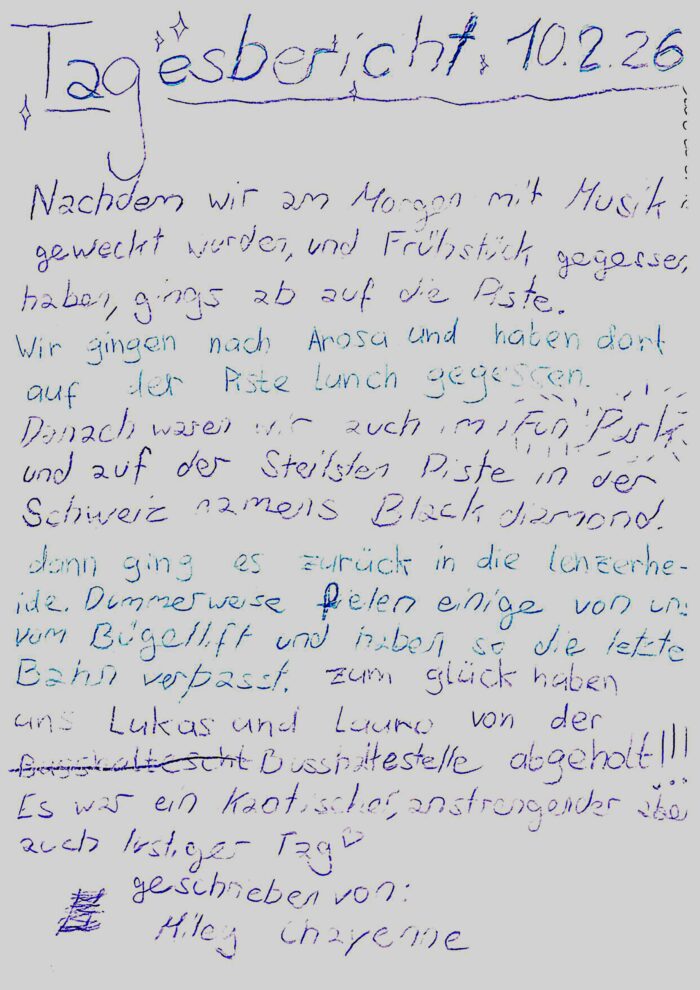 Tagesbericht 10.2.26
Nachdem wir am Morgen mit Musik
geweckt wurden, und Frühstück gegessen
haben, gings ab auf die Piste.
Wir gingen nach Arosa und haben dort
auf der Piste lunch gegessen.
Danach waren wir auch im Fun Park
und auf der Steilsten Piste in der
Schweiz namens Black diamond.
dann ging es zurück in die lenzerhe-
ide. Dummerweise fielen einige von uns
vom Bügellift und haben so die letzte
Bahn verpasst. zum glück haben
uns Lukas und Lauro von der
Busshaltestelle abgeholt!!!
Es war ein Kaotischer, anstrengender aber
auch lustiger Tag♡
geschrieben von:
Miley Chayenne